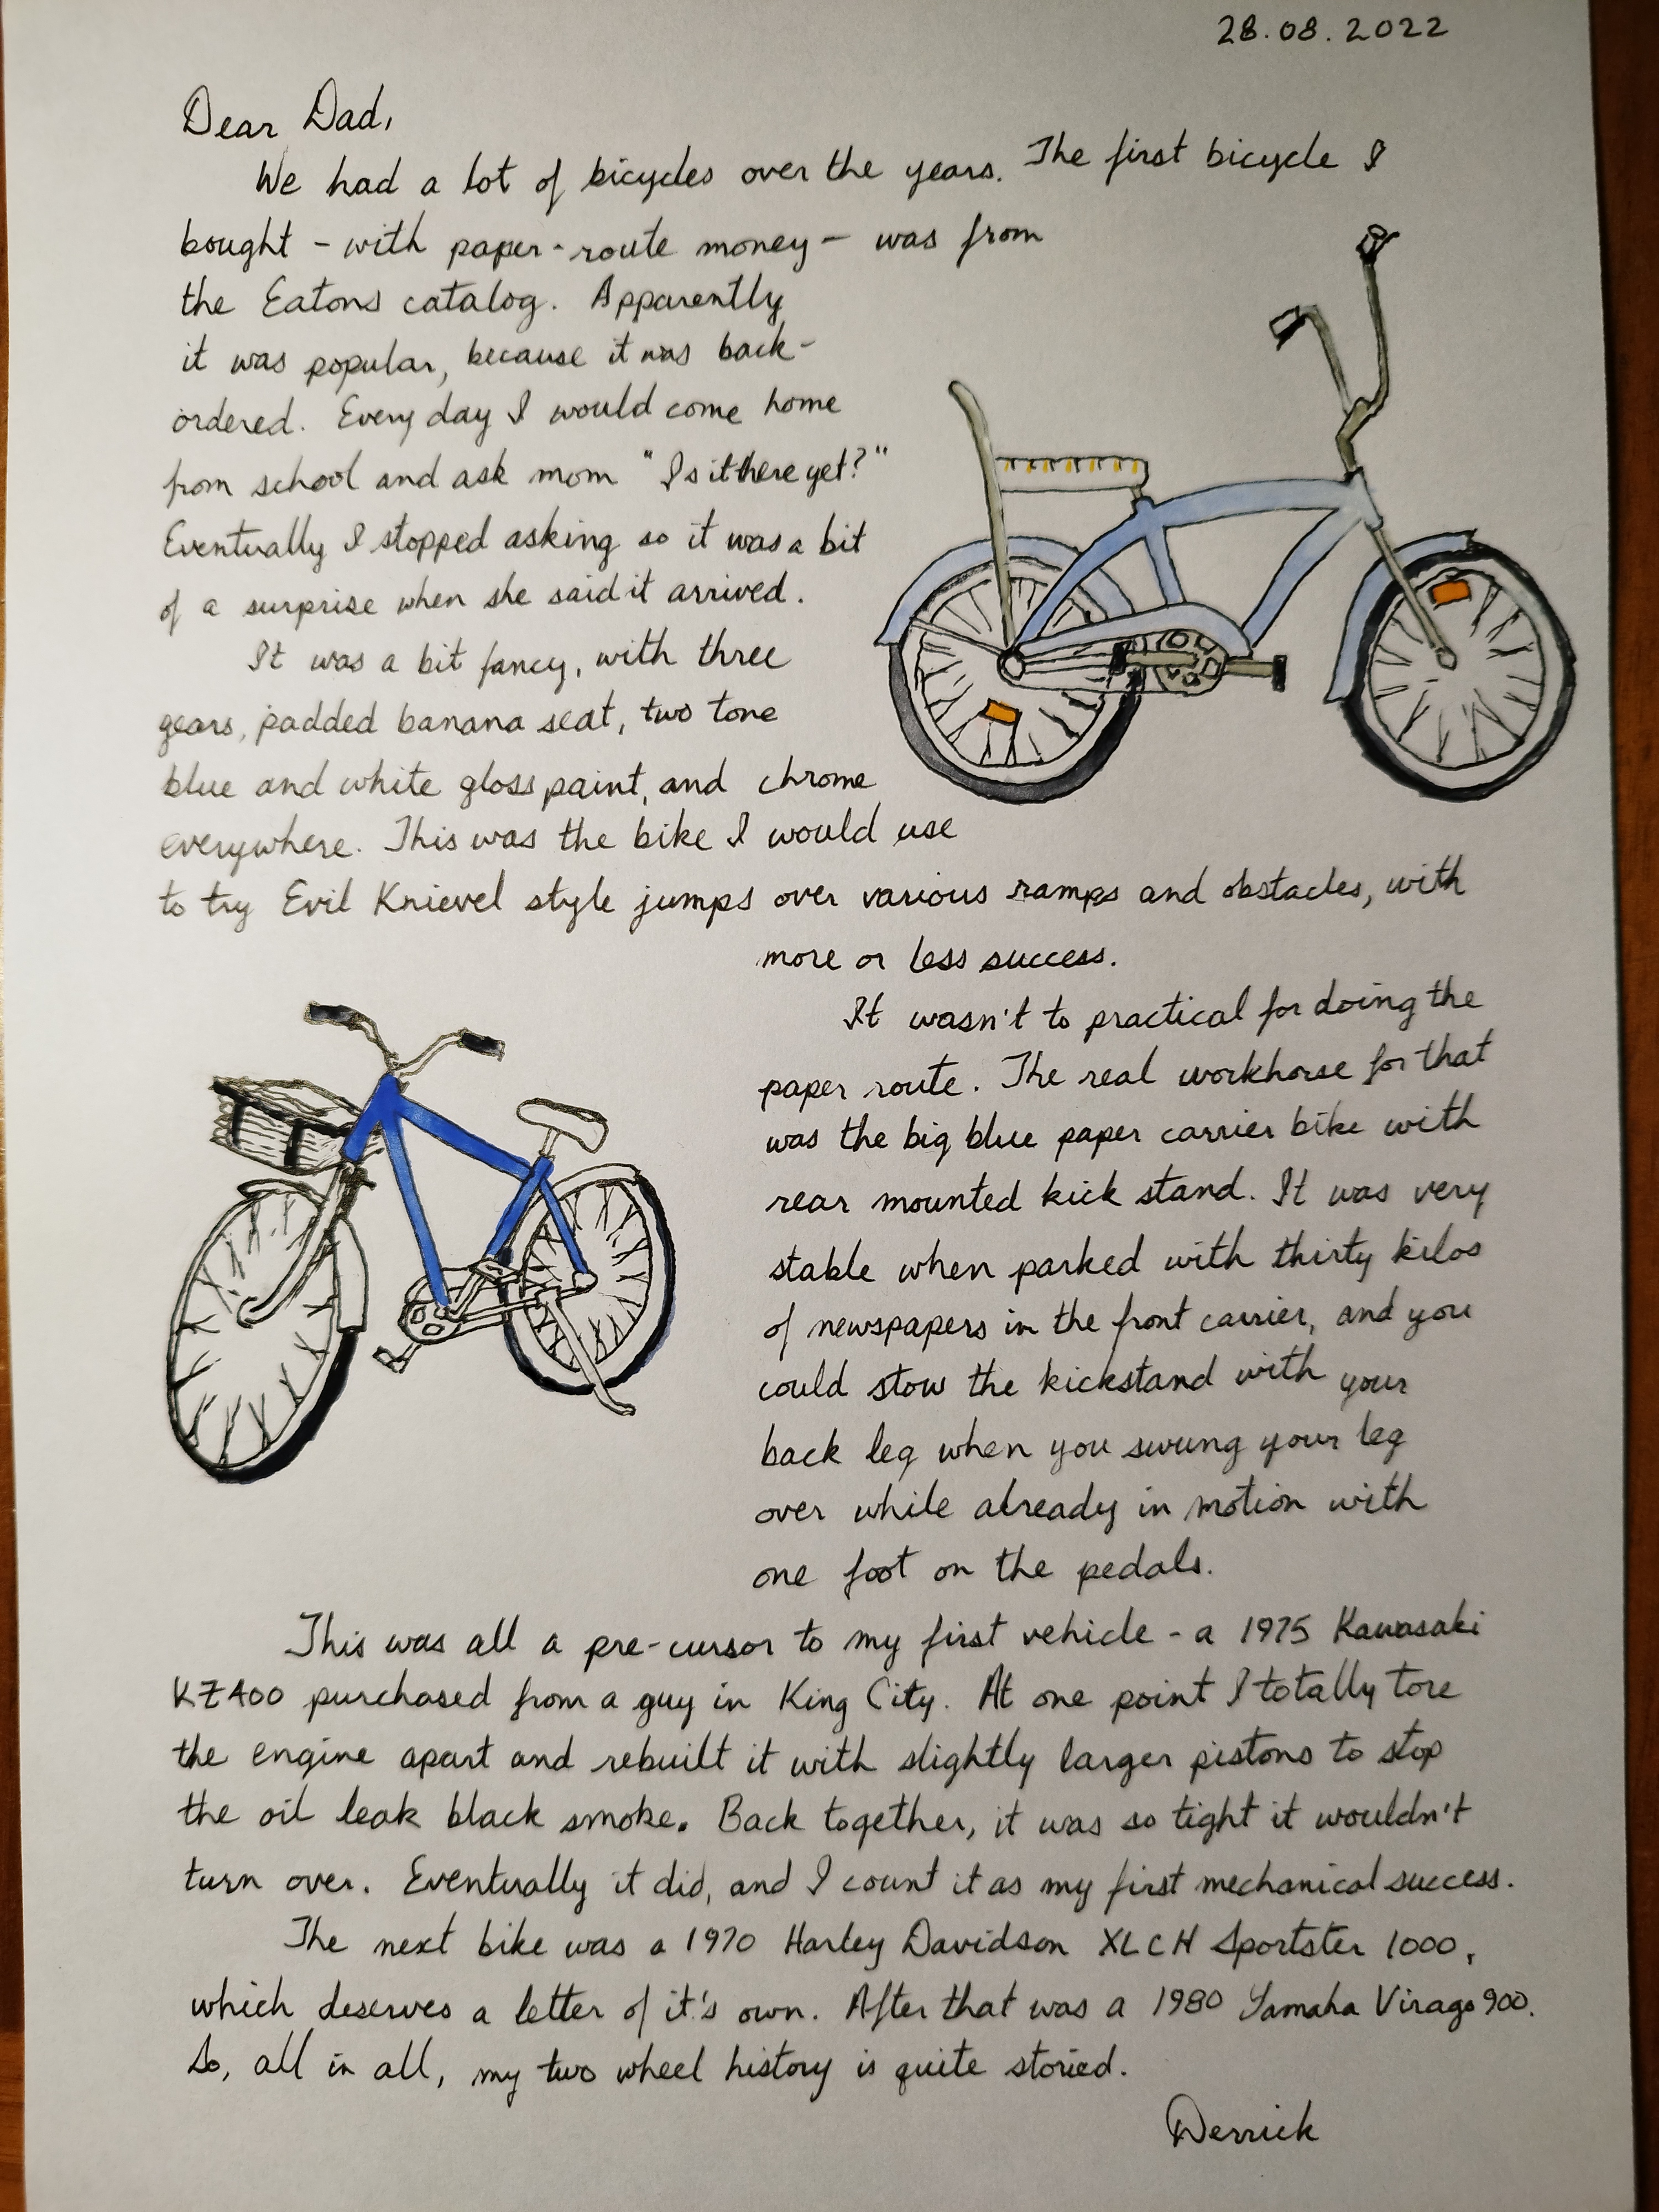 28.08.2022
Dear Dad,
We had a lot of bicycles over the years. The first bicycle I
bought - with paper-route money - was from
the Eatons catalog. Apparently
it was popular, because it was back-
ordered. Every day I would come home
from school and ask mom "Is it there yet?"
Eventually I stopped asking so it was a bit
of a surprise when she said it arrived.
It was a bit fancy, with three
gears, padded banana seat, two tone
blue and white gloss paint, and chrome
everywhere. This was the bike I would use
to try Evil Knievel style jumps over various ramps and obstacles, with
more or less success.
It wasn't to practical for doing the
paper route. The real workhorse for that
was the big blue paper carrier bike with
rear mounted kick stand. It was very
stable when parked with thirty kilos
of newspapers in the front carrier, and you
could stow the kickstand with your
back leg when you swung your leg
over while already in motion with
one foot on the pedals.
This was all a pre-cursor to my first vehicle - a 1975 Kawasaki
KZ400 purchased from a guy in King City. At one point I totally tore
the engine apart and rebuilt it with slightly larger pistons to stop
the oil leak black smoke. Back together, it was so tight it wouldn't
turn over. Eventually it did, and I count it as my first mechanical success.
The next bike was a 1970 Harley Davidson XLCH Sportster 1000,
which deserves a letter of it's own. After that was a 1980 Yamaha Virago 900.
So, all in all, my two wheel history is quite storied.
Derrick